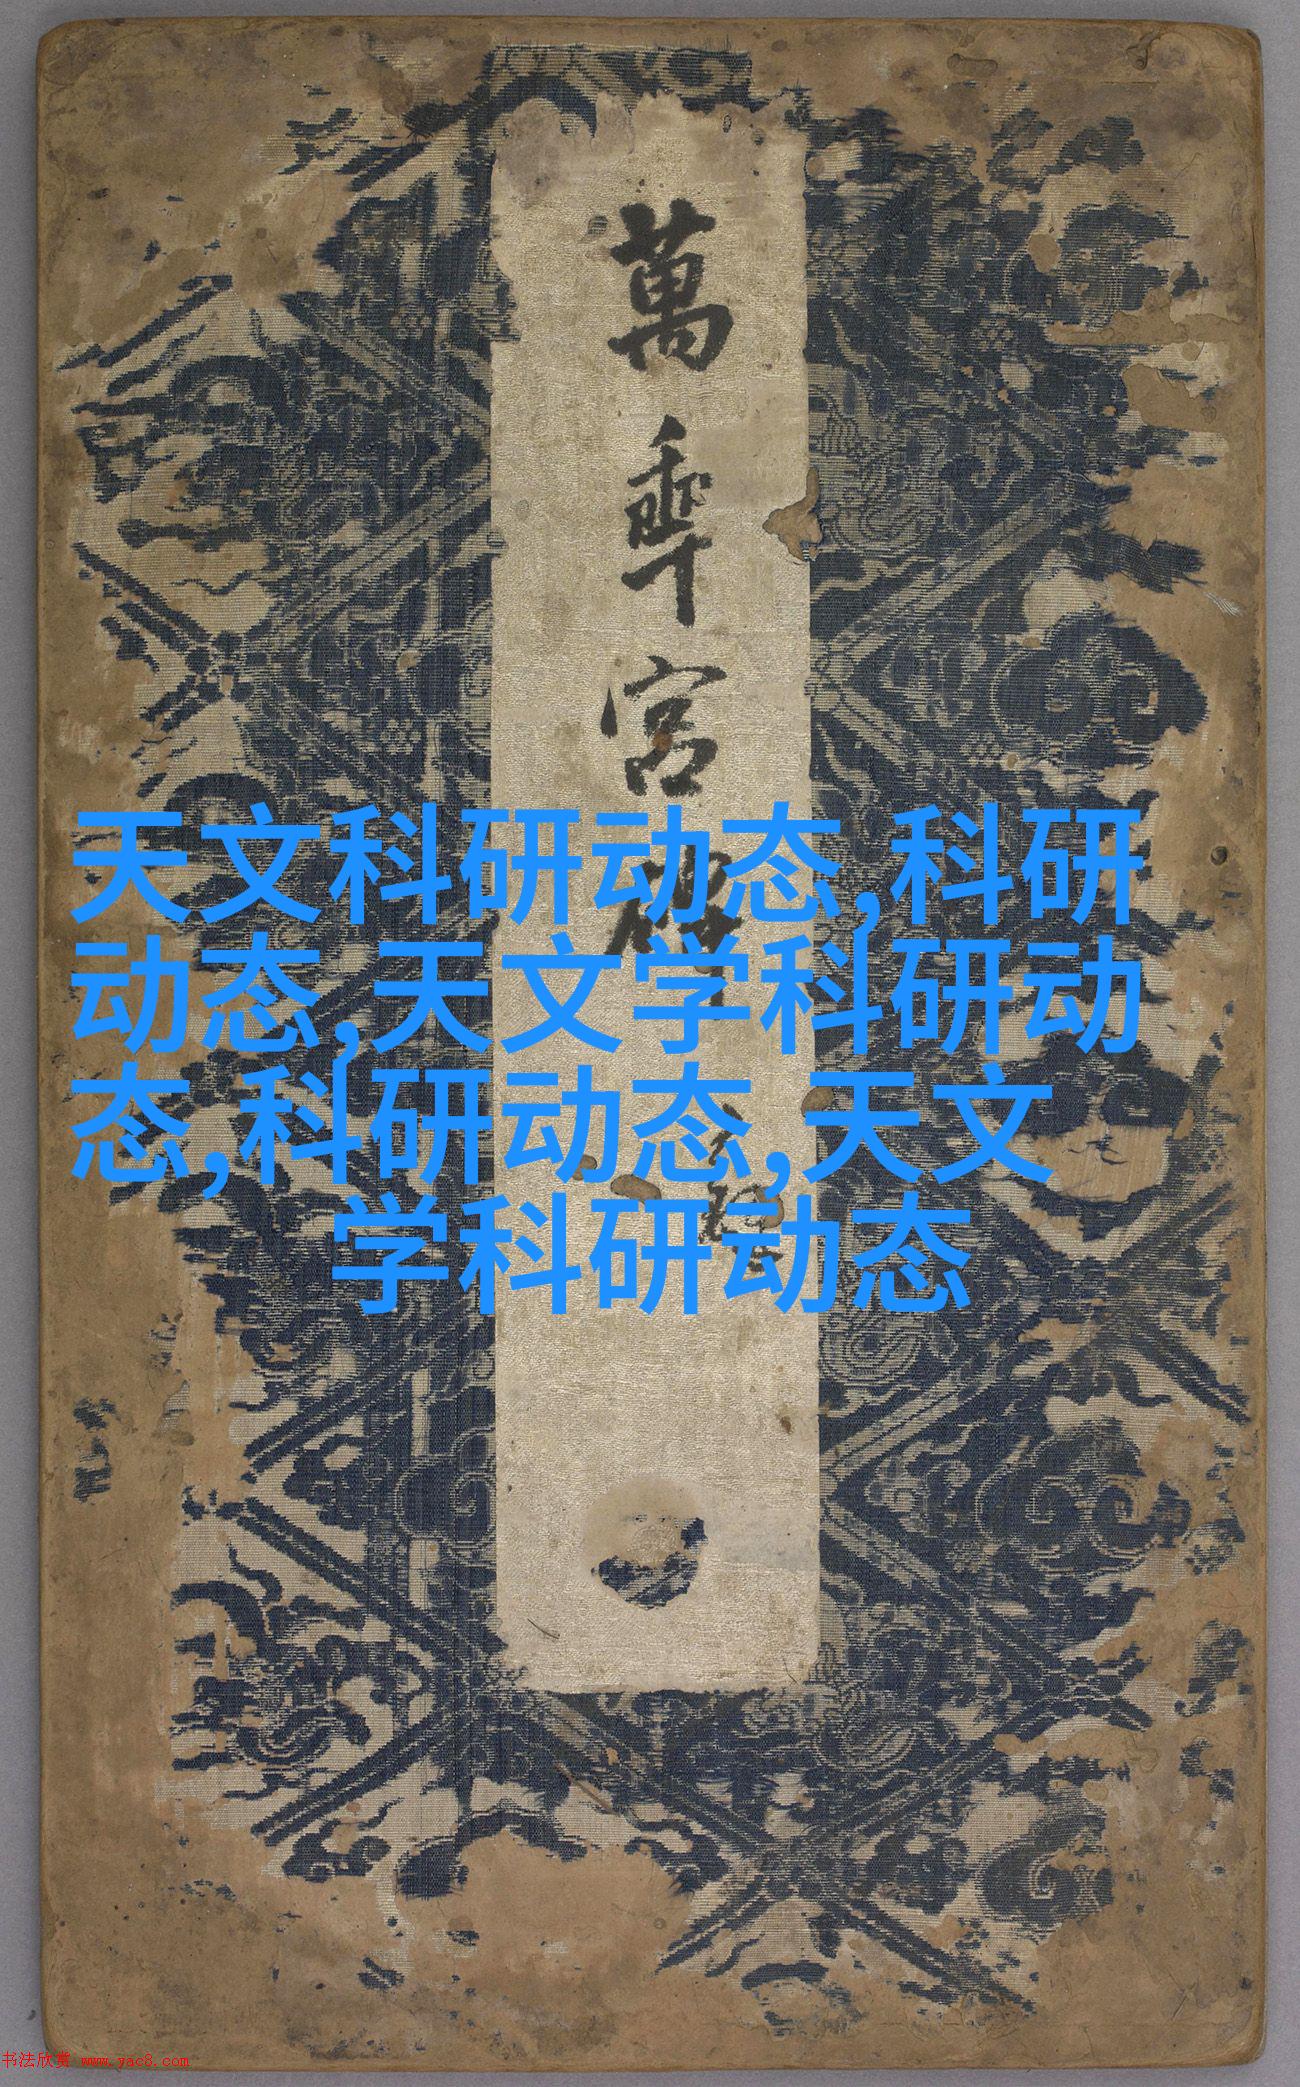 萬年宮碑
天文科研动态,科研
动态,天文学科研动
态,科研动态,天文
学科研动态
书法欣赏 www.yac8.com